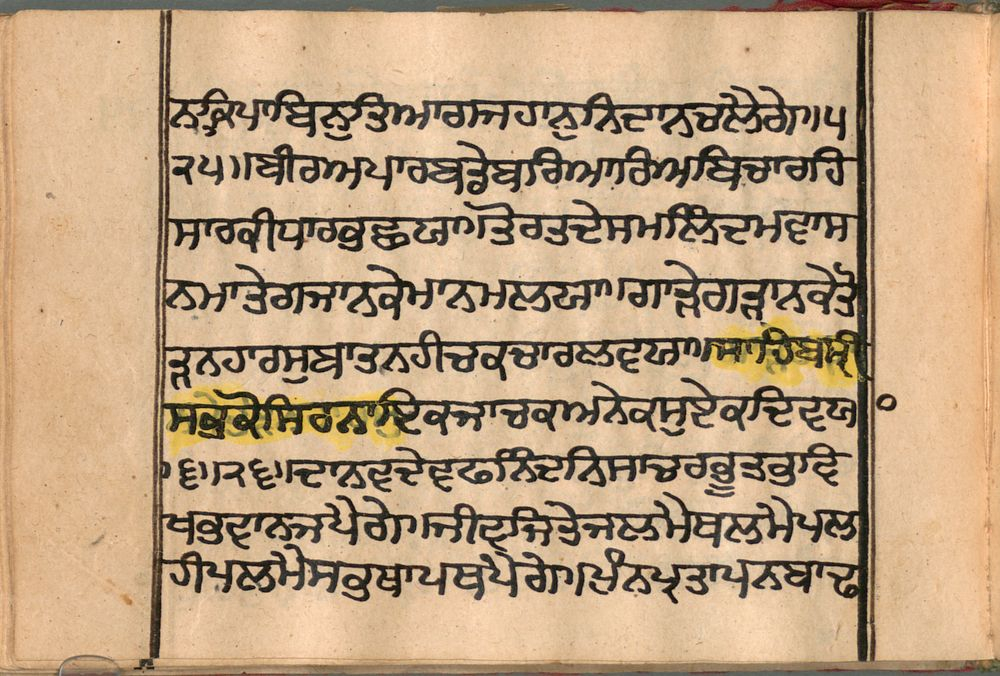 ਨ ਕ੍ਰਿਪਾ ਬਿਨੁ ਤਿਆਗ ਜਹਾਨੁ ਨਿਦਾਨ ਚਲੈਗੇ ॥੫
॥੨੫॥ ਬੀਰ ਅਪਾਰ ਬਡੇ ਬਰਿਆਰਿ ਅਬਿਚਾਰਹਿ
ਸਾਰ ਕੀ ਧਾਰ ਭਛਯਾ ॥ ਤੋਰਤ ਦੇਸ ਮਲਿੰਦ ਮਵਾਸ
ਨ ਮਾਤੇ ਗਜਾਨ ਕੇ ਮਾਨ ਮਲਯਾ ॥ ਗਾੜੇ ਗੜਾਨ ਕੇ ਤੋ
ੜਨਹਾਰ ਸੁ ਬਾਤਨ ਹੀ ਚਕ ਚਾਰ ਲਵਯਾ ॥ ਸਾਹਿਬ ਸ੍ਰੀ
ਸਭ ਕੋ ਸਿਰਨਾਇਕ ਜਾਚਕ ਅਨੇਕ ਸੁ ਏਕ ਦਿਵਯਾ
॥੬॥੨੬॥ ਦਾਨਵ ਦੇਵ ਫਨਿੰਦ ਨਿਸਾਚਰ ਭੂਤ ਭਵਿ
ਖ ਭਵਾਨ ਜਪੈਗੇ ॥ ਜੀਵ ਜਿਤੇ ਜਲ ਮੈ ਥਲ ਮੈ ਪਲ
ਹੀ ਪਲ ਮੈ ਸਭ ਥਾਪ ਥਪੈਗੇ ॥ ਪੁੰਨ ਪ੍ਰਤਾਪਨ ਬਾਢ